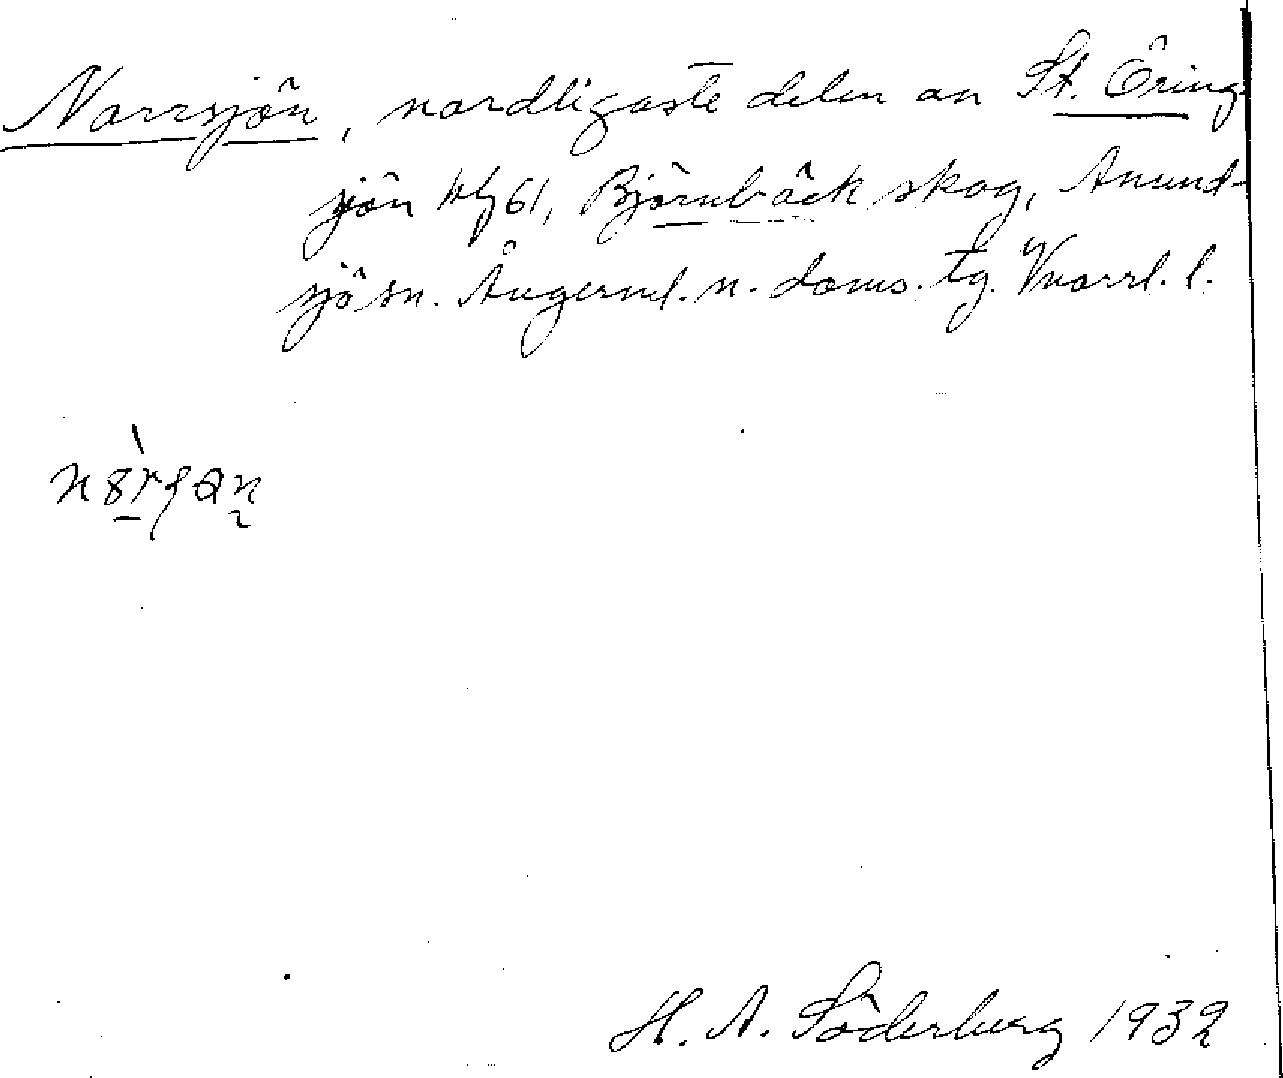 Norrsjön, nordligaste delen av St. Öring-
sjön bf 61, Björnbäck skog, Anund-
sjö sn. Ångerml. n. doms. tg. Vnorrl. l.
H. A. Söderberg 1932